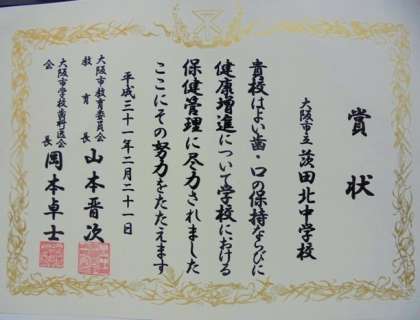 賞状
大阪市立茨田北中学校
貴校はよい歯・口の保持ならびに
健康増進について学校における
保健管理に尽力されました
ここにその努力をたたえます
平成三十一年二月二十一日
大阪市教育委員会
教育長 山本晋次
大阪市学校歯科医会
会長 岡本卓士